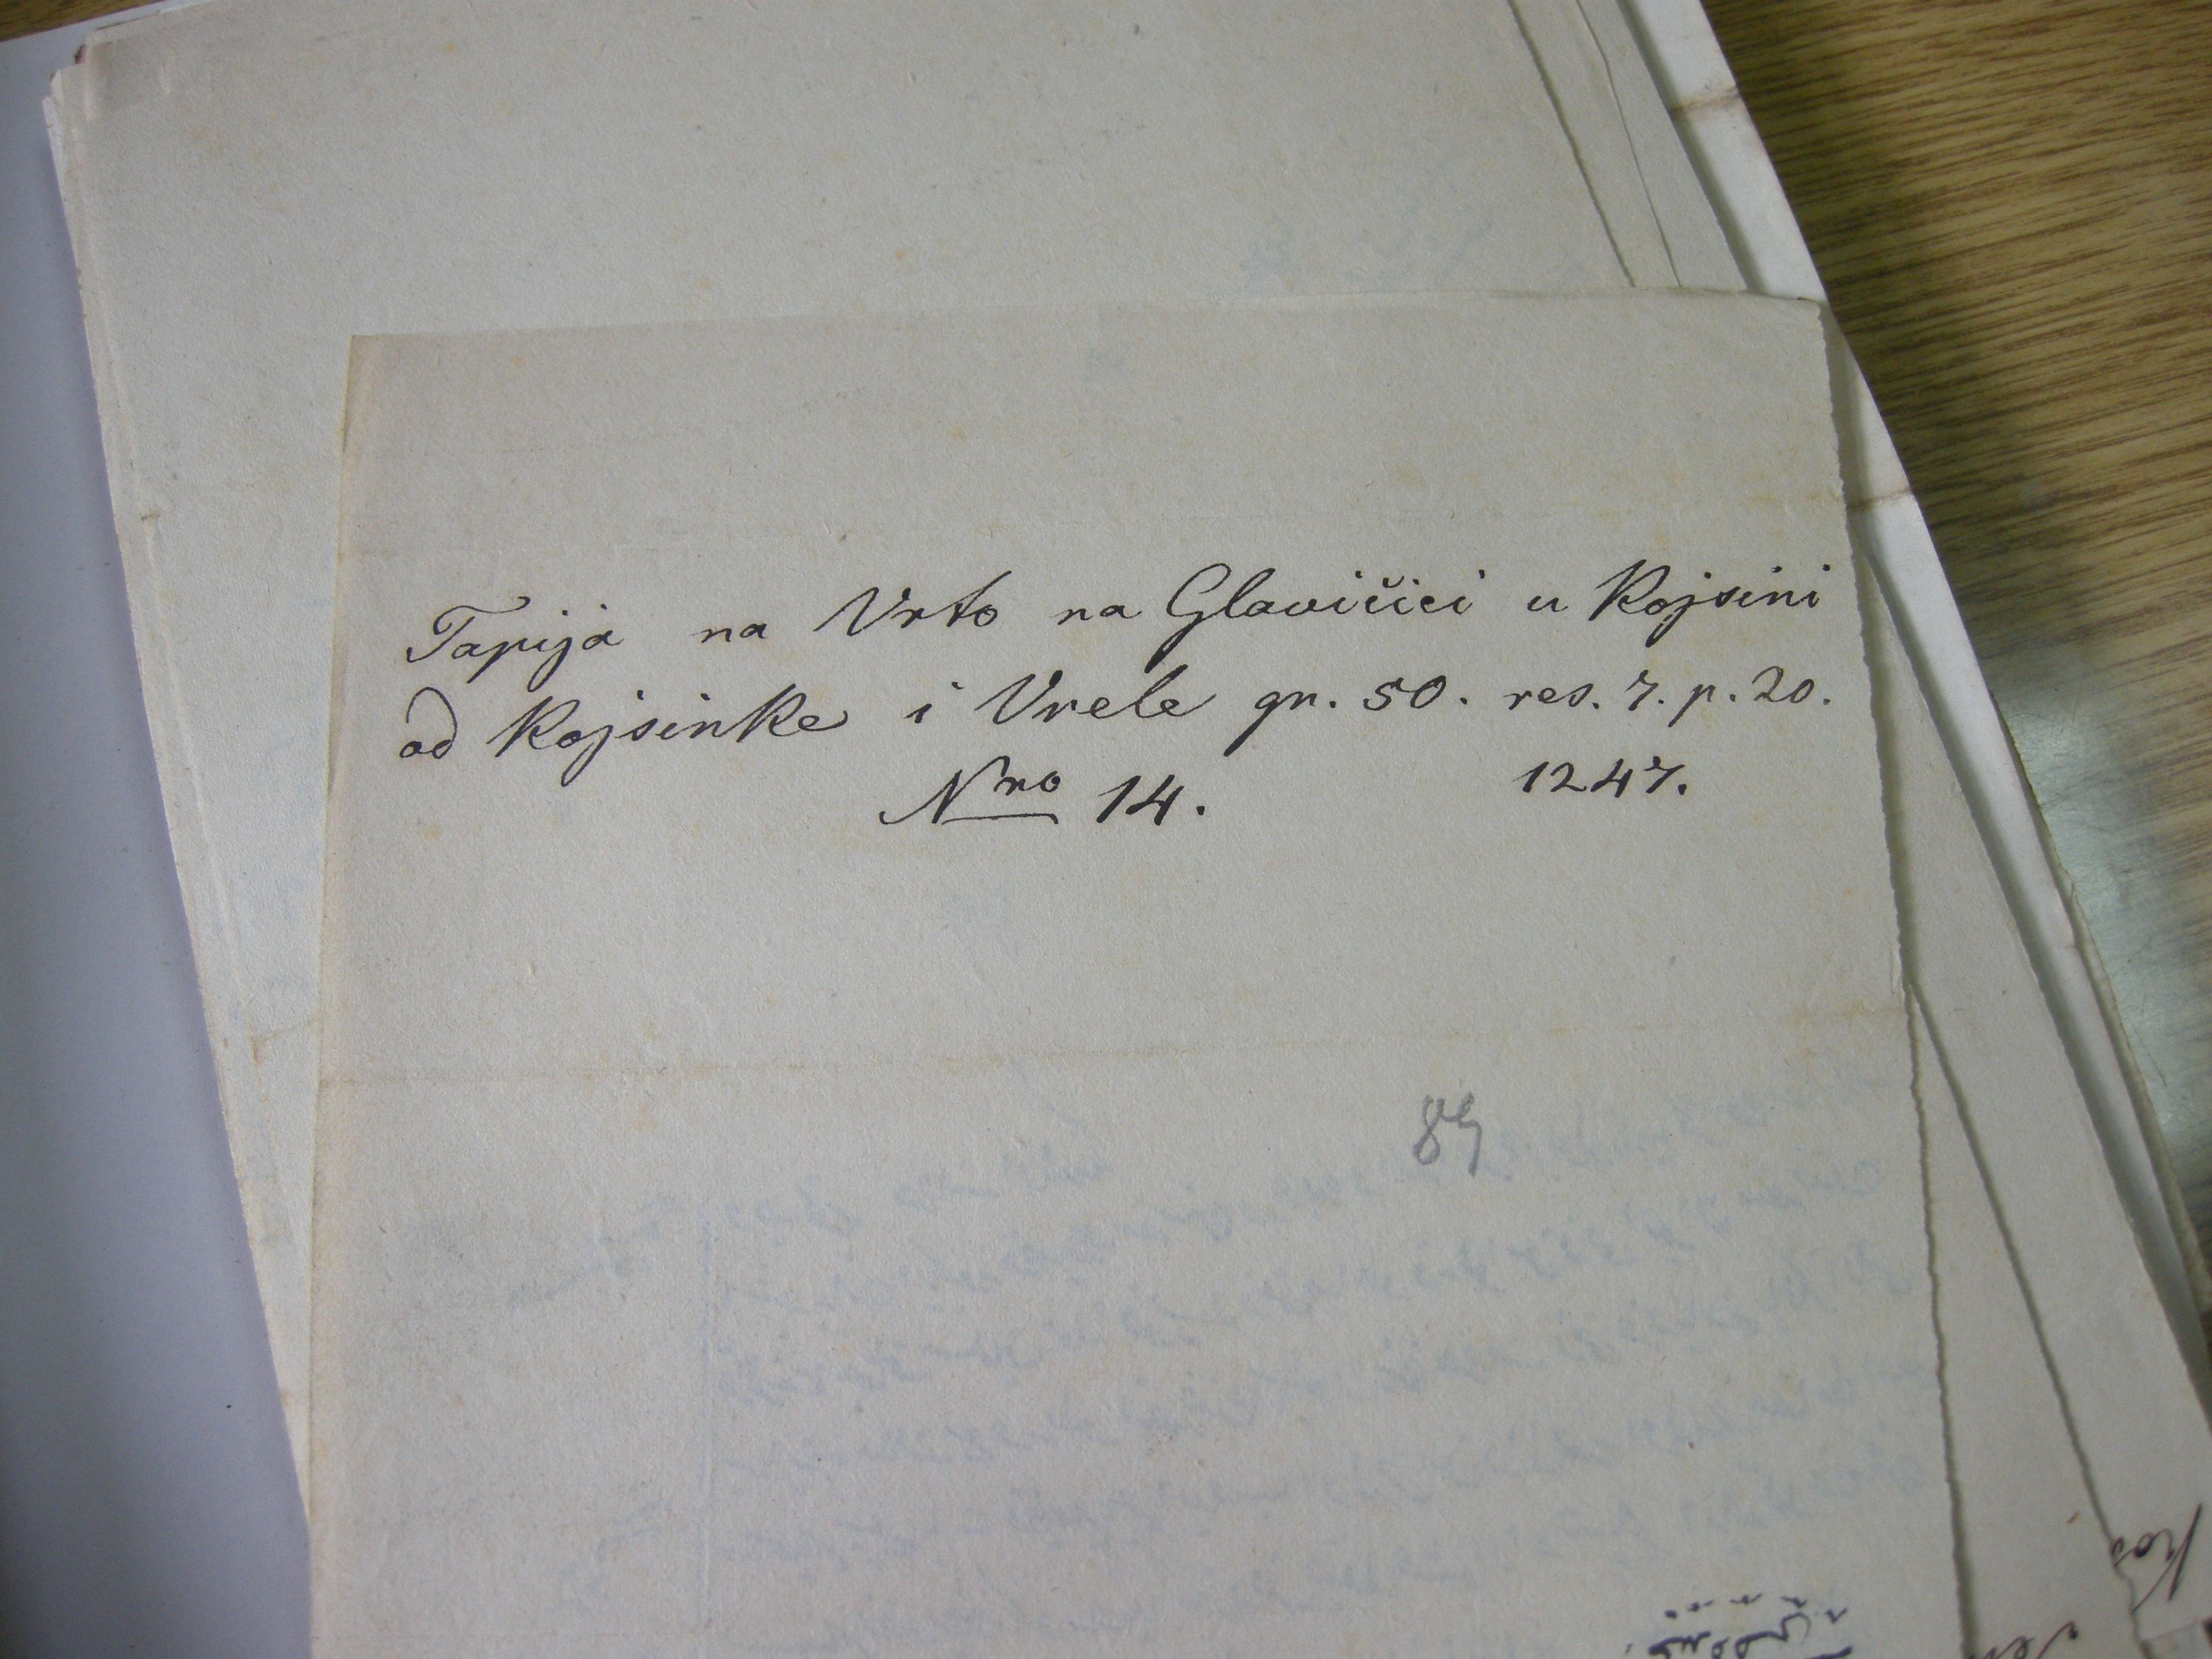 Tapija na Vrto na Glavičici u Kojsini
od Kojsinke i Vrele gr. 50. res. 7. p. 20.
Nro 14. 1247.
89